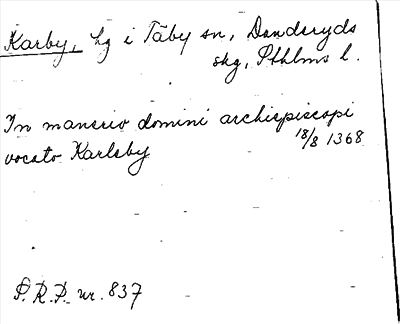 Karby, Lg i Täby sn, Danderyds
skg, Sthlms l.
In manerio domini archiepiscopi
vocato Karlsby 18/8 1368
P.R.P. nr. 837